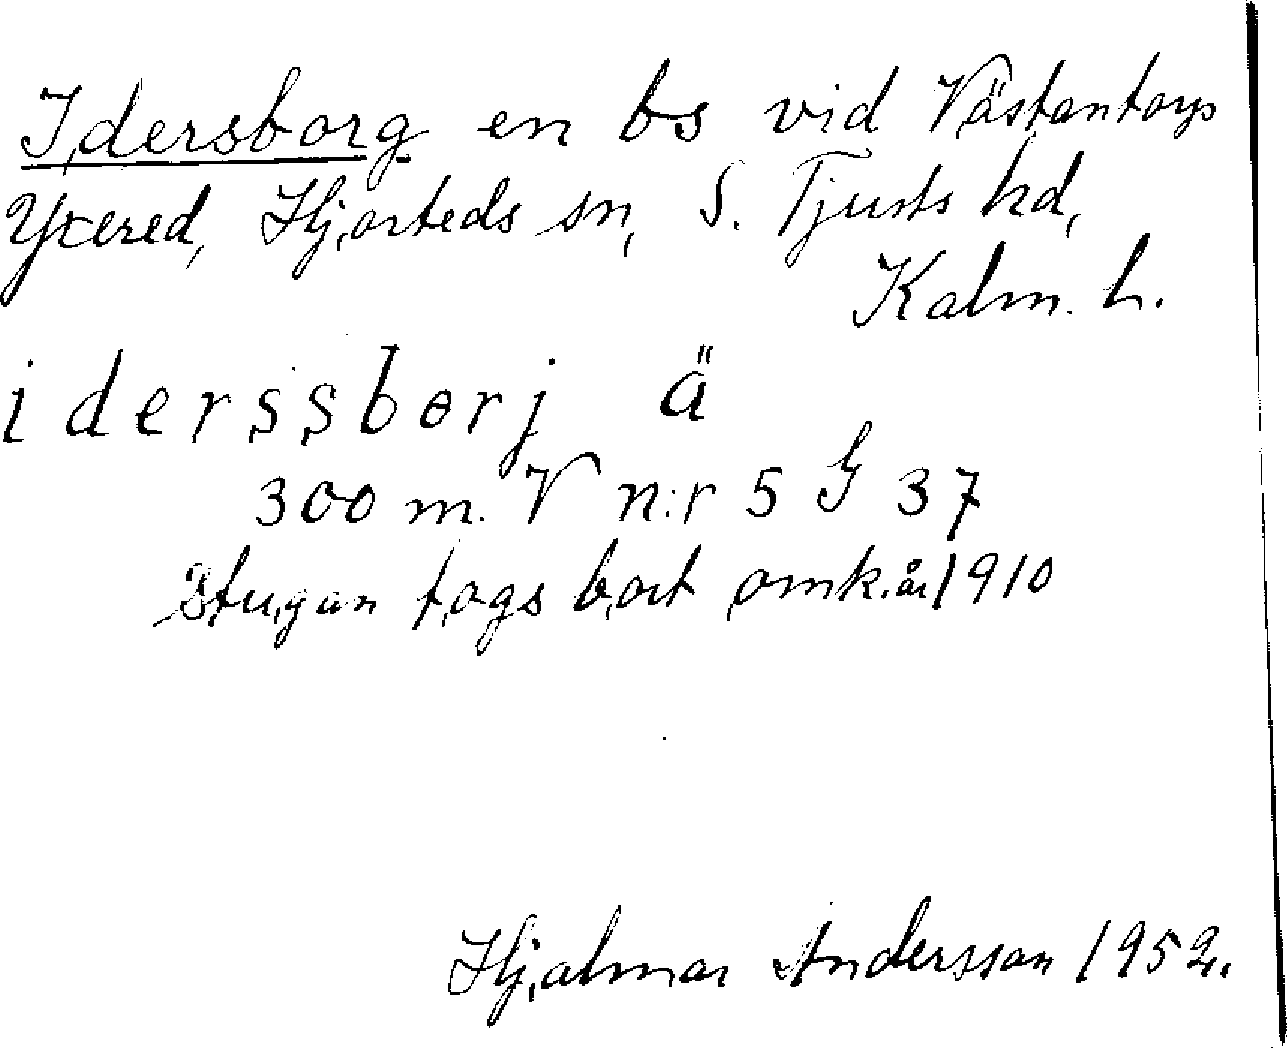 Idersborg en bs vid Västantorps
Yxered, Hjorteds sn, S. Tjusts hd,
Kalm. l.
iderssbɵrj ä
300 m. V n:r 5 G 37
Stugan togs bort omk. år 1910
Hjalmar Andersson 1952.